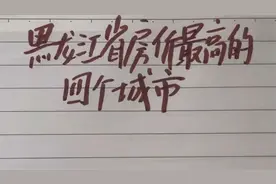 黑龙江省房价最高的
四个城市